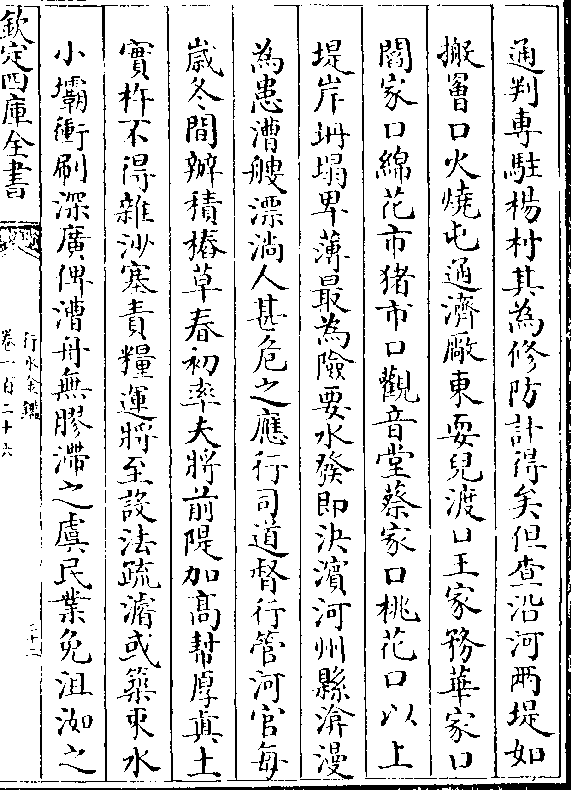 通判專駐楊村其為修防計得矣但查沿河兩堤如
搬罾口火燒屯通濟廠東耍兒渡口王家務華家口
閻家口綿花市猪市口觀音堂蔡家口桃花口以上
堤岸坍塌卑薄最為險要水發即決濵河州縣渰漫
為患漕艘漂淌人甚危之應行司道督行管河官每
嵗冬間辦積樁草春初率夫將前隄加髙幇厚真土
實杵不得雜沙塞責糧運將至設法疏濬或築束水
小壩衝刷深廣俾漕舟無膠滯之虞民業免沮洳之
欽定四庫全書
行水金鑑
卷一百二十六